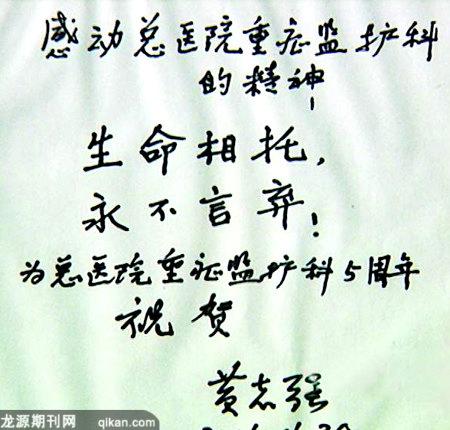 感动总医院重症监护科
的精神！
生命相托，
永不言弃！
为总医院重症监护科5周年
祝贺
黄志强
龙源期刊网 qikan.com